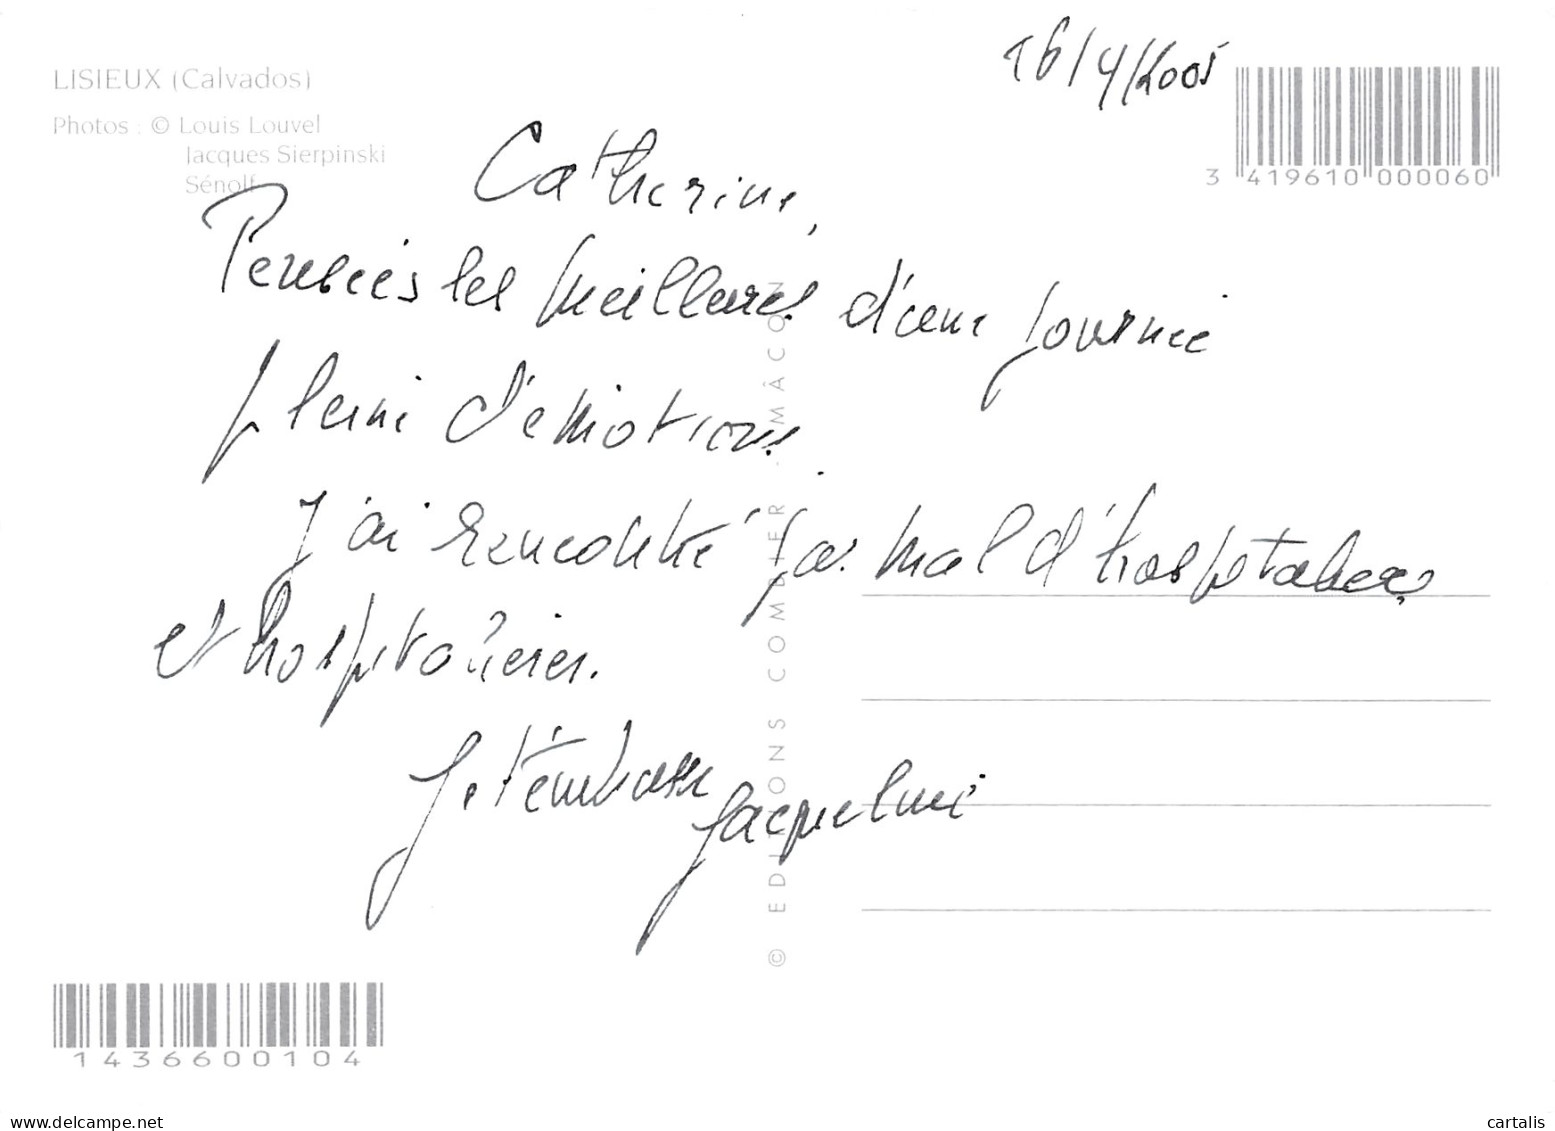 LISIEUX (Calvados)
Photos : © Louis Louvel
Jacques Sierpinski
Sénolf
16/4/2005
3 419610 000060
Catherine,
Pensées les meilleures d'une journée
pleine d'émotions.
J'ai rencontré pas mal d'hospitaliers
et hospitalières.
Je t'embrasse
Jacqueline
© EDITIONS COMBIER MÂCON
1436600104
www.delcampe.net
cartalis